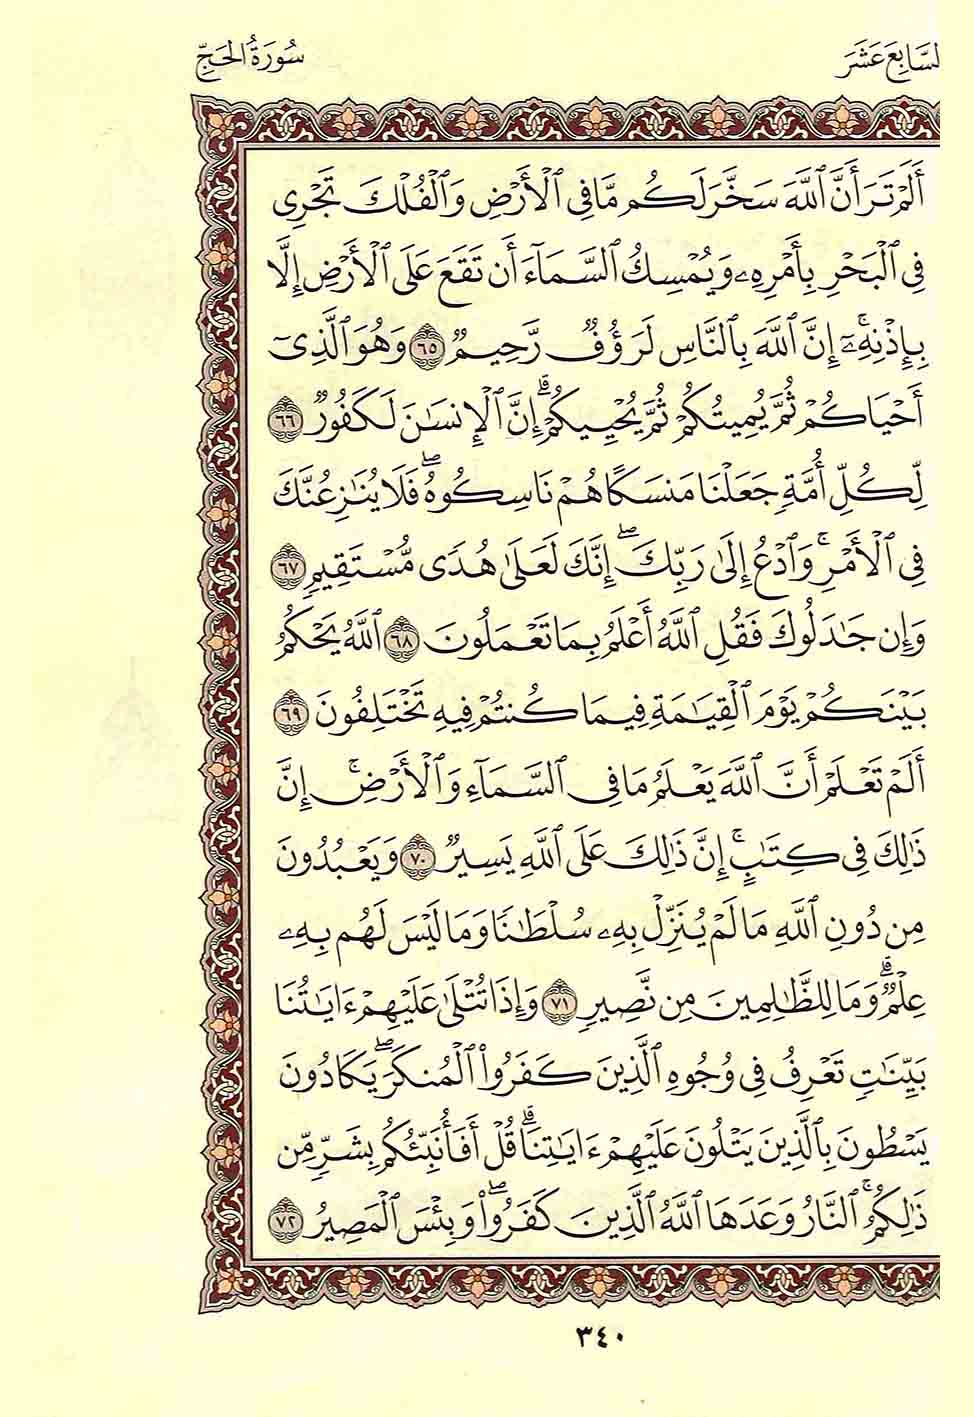 لسَّابِعَ عَشَرَ
سُورَةُ الحَجِّ
أَلَمۡ تَرَ أَنَّ ٱللَّهَ سَخَّرَ لَكُم مَّا فِي ٱلۡأَرۡضِ وَٱلۡفُلۡكَ تَجۡرِي
فِي ٱلۡبَحۡرِ بِأَمۡرِهِۦ وَيُمۡسِكُ ٱلسَّمَآءَ أَن تَقَعَ عَلَى ٱلۡأَرۡضِ إِلَّا
بِإِذۡنِهِۦٓۚ إِنَّ ٱللَّهَ بِٱلنَّاسِ لَرَءُوفٞ رَّحِيمٞ ٦٥ وَهُوَ ٱلَّذِيٓ
أَحۡيَاكُمۡ ثُمَّ يُمِيتُكُمۡ ثُمَّ يُحۡيِيكُمۡۗ إِنَّ ٱلۡإِنسَٰنَ لَكَفُورٞ ٦٦
لِّكُلِّ أُمَّةٖ جَعَلۡنَا مَنسَكًا هُمۡ نَاسِكُوهُۖ فَلَا يُنَٰزِعُنَّكَ
فِي ٱلۡأَمۡرِۚ وَٱدۡعُ إِلَىٰ رَبِّكَۖ إِنَّكَ لَعَلَىٰ هُدٗى مُّسۡتَقِيمٖ ٦٧
وَإِن جَٰدَلُوكَ فَقُلِ ٱللَّهُ أَعۡلَمُ بِمَا تَعۡمَلُونَ ٦٨ ٱللَّهُ يَحۡكُمُ
بَيۡنَكُمۡ يَوۡمَ ٱلۡقِيَٰمَةِ فِيمَا كُنتُمۡ فِيهِ تَخۡتَلِفُونَ ٦٩
أَلَمۡ تَعۡلَمۡ أَنَّ ٱللَّهَ يَعۡلَمُ مَا فِي ٱلسَّمَآءِ وَٱلۡأَرۡضِۚ إِنَّ
ذَٰلِكَ فِي كِتَٰبٍۚ إِنَّ ذَٰلِكَ عَلَى ٱللَّهِ يَسِيرٞ ٧٠ وَيَعۡبُدُونَ
مِن دُونِ ٱللَّهِ مَا لَمۡ يُنَزِّلۡ بِهِۦ سُلۡطَٰنٗا وَمَا لَيۡسَ لَهُم بِهِۦ
عِلۡمٞۗ وَمَا لِلظَّٰلِمِينَ مِن نَّصِيرٖ ٧١ وَإِذَا تُتۡلَىٰ عَلَيۡهِمۡ ءَايَٰتُنَا
بَيِّنَٰتٖ تَعۡرِفُ فِي وُجُوهِ ٱلَّذِينَ كَفَرُواْ ٱلۡمُنكَرَۖ يَكَادُونَ
يَسۡطُونَ بِٱلَّذِينَ يَتۡلُونَ عَلَيۡهِمۡ ءَايَٰتِنَاۗ قُلۡ أَفَأُنَبِّئُكُم بِشَرّٖ مِّن
ذَٰلِكُمُۚ ٱلنَّارُ وَعَدَهَا ٱللَّهُ ٱلَّذِينَ كَفَرُواْۖ وَبِئۡسَ ٱلۡمَصِيرُ ٧٢
٣٤٠